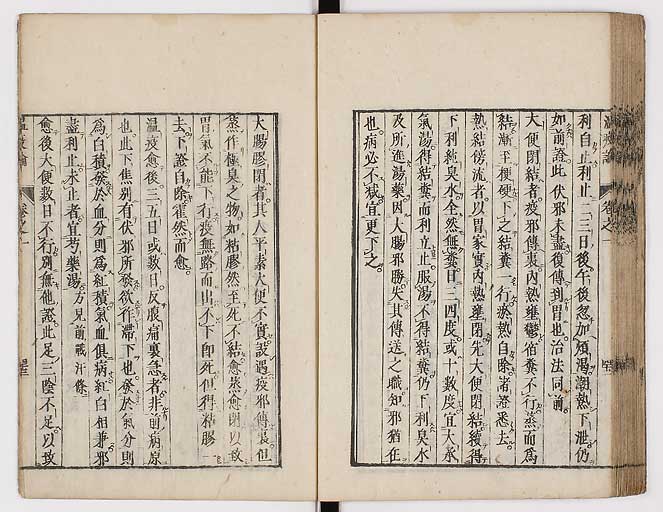 利自止利止二三日後午後忽加煩渴潮熱下泄仍
如前證此伏邪未盡復傳到胃也治法同前
大便閉結者疫邪傳裏內熱壅鬱宿糞不行蒸而爲
結漸至梗硬下之結糞一行瘀熱自除諸證悉去
熱結傍流者以胃家實內熱壅閉先大便閉結續得
下利純臭水全然無糞日三四度或十數度宜大承
氣湯得結糞而利立止服湯不得結糞仍下利臭水
及所進湯藥因大腸邪勝失其傳送之職知邪猶在
也病必不減宜更下之
大腸膠閉者其人平素大便不實設遇疫邪傳裏但
蒸作極臭之物如粘膠然至死不結愈蒸愈閉以致
胃氣不能下行疫無路而出不下即死但得粘膠一
去下證自除霍然而愈
溫疫愈後三五日或數日反腹痛裏急者非前病原
也此下焦別有伏邪所發欲作滯下也發於氣分則
爲白積發於血分則爲紅積氣血俱病紅白相兼邪
盡利止未止者宜芍藥湯方見前戰汗條
愈後大便數日不行別無他證此足三陰不足以致
溫疫論
卷之一